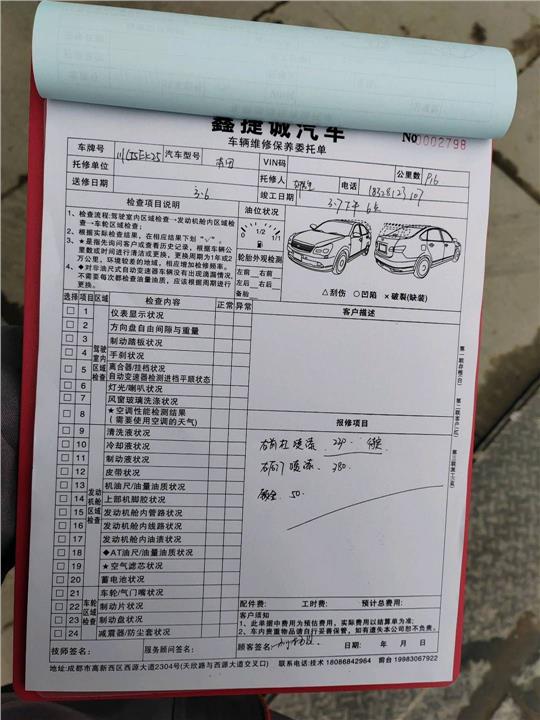 鑫捷诚汽车
车辆维修保养委托单
No 0002798
车牌号 汽车型号 本田 VIN码 公里数
托修单位 托修人 电话
送修日期 3.6 竣工日期
检查项目说明 油位状况
1、检查流程:驾驶室内区域检查→发动机舱内区域检查→车轮区域检查;
2、根据实际检查结果,在相应结果下划"√"。
3、★是指先询问客户或查看历史记录,根据车辆公里数或时间进行清洁或更换,更换周期为1年或2万公里,环境较差的地域,相应增加检修频率。
4、◆对非油尺式自动变速器车辆没有出现泄漏情况,不需要每次都检查油量油质,应该根据周期进行更换。
0 1/2 1/1
轮胎外观检测
左前 右前
左后 右后
备胎
△刮伤 ○凹陷 ×破裂(缺装)
选择 项目 区域 检查内容 正常 异常
客户描述
驾驶室内区域检查
1 仪表显示状况
2 方向盘自由间隙与重量
3 制动踏板状况
4 手刹状况
5 离合器/挂档状况
自动变速器检测进档平顺状态
6 灯光/喇叭状况
7 风窗玻璃洗涤状况
8 ★空调性能检测结果
(需要使用空调的天气)
报修项目
发动机舱区域检查
9 清洗液状况
10 冷却液状况
11 制动液状况
12 皮带状况
13 机油尺/油量油质状况
14 上部机脚胶状况
15 发动机舱内管路状况
16 发动机舱内线路状况
17 发动机舱内油渍状况
18 ◆AT油尺/油量油质状况
19 ★空气滤芯状况
20 蓄电池状况
车轮区域检查
21 车轮/气门嘴状况
22 制动片状况
23 制动盘状况
24 减震器/防尘套状况
右前杠喷漆
右后门喷漆 380
钣金 50.
配件费: 工时费: 预计总费用:
客户须知
1、此单据中费用为预估费用,实际费用以结算单为准;
2、车内贵重物品请自行妥善保管,如有遗失本公司恕不负责。
技师签名: 服务顾问签名: 顾客签名: 日期: 年 月 日
地址:成都市高新西区西源大道2304号(天欣路与西源大道交叉口) 联系电话:技术 18086842964 前台 19983067922